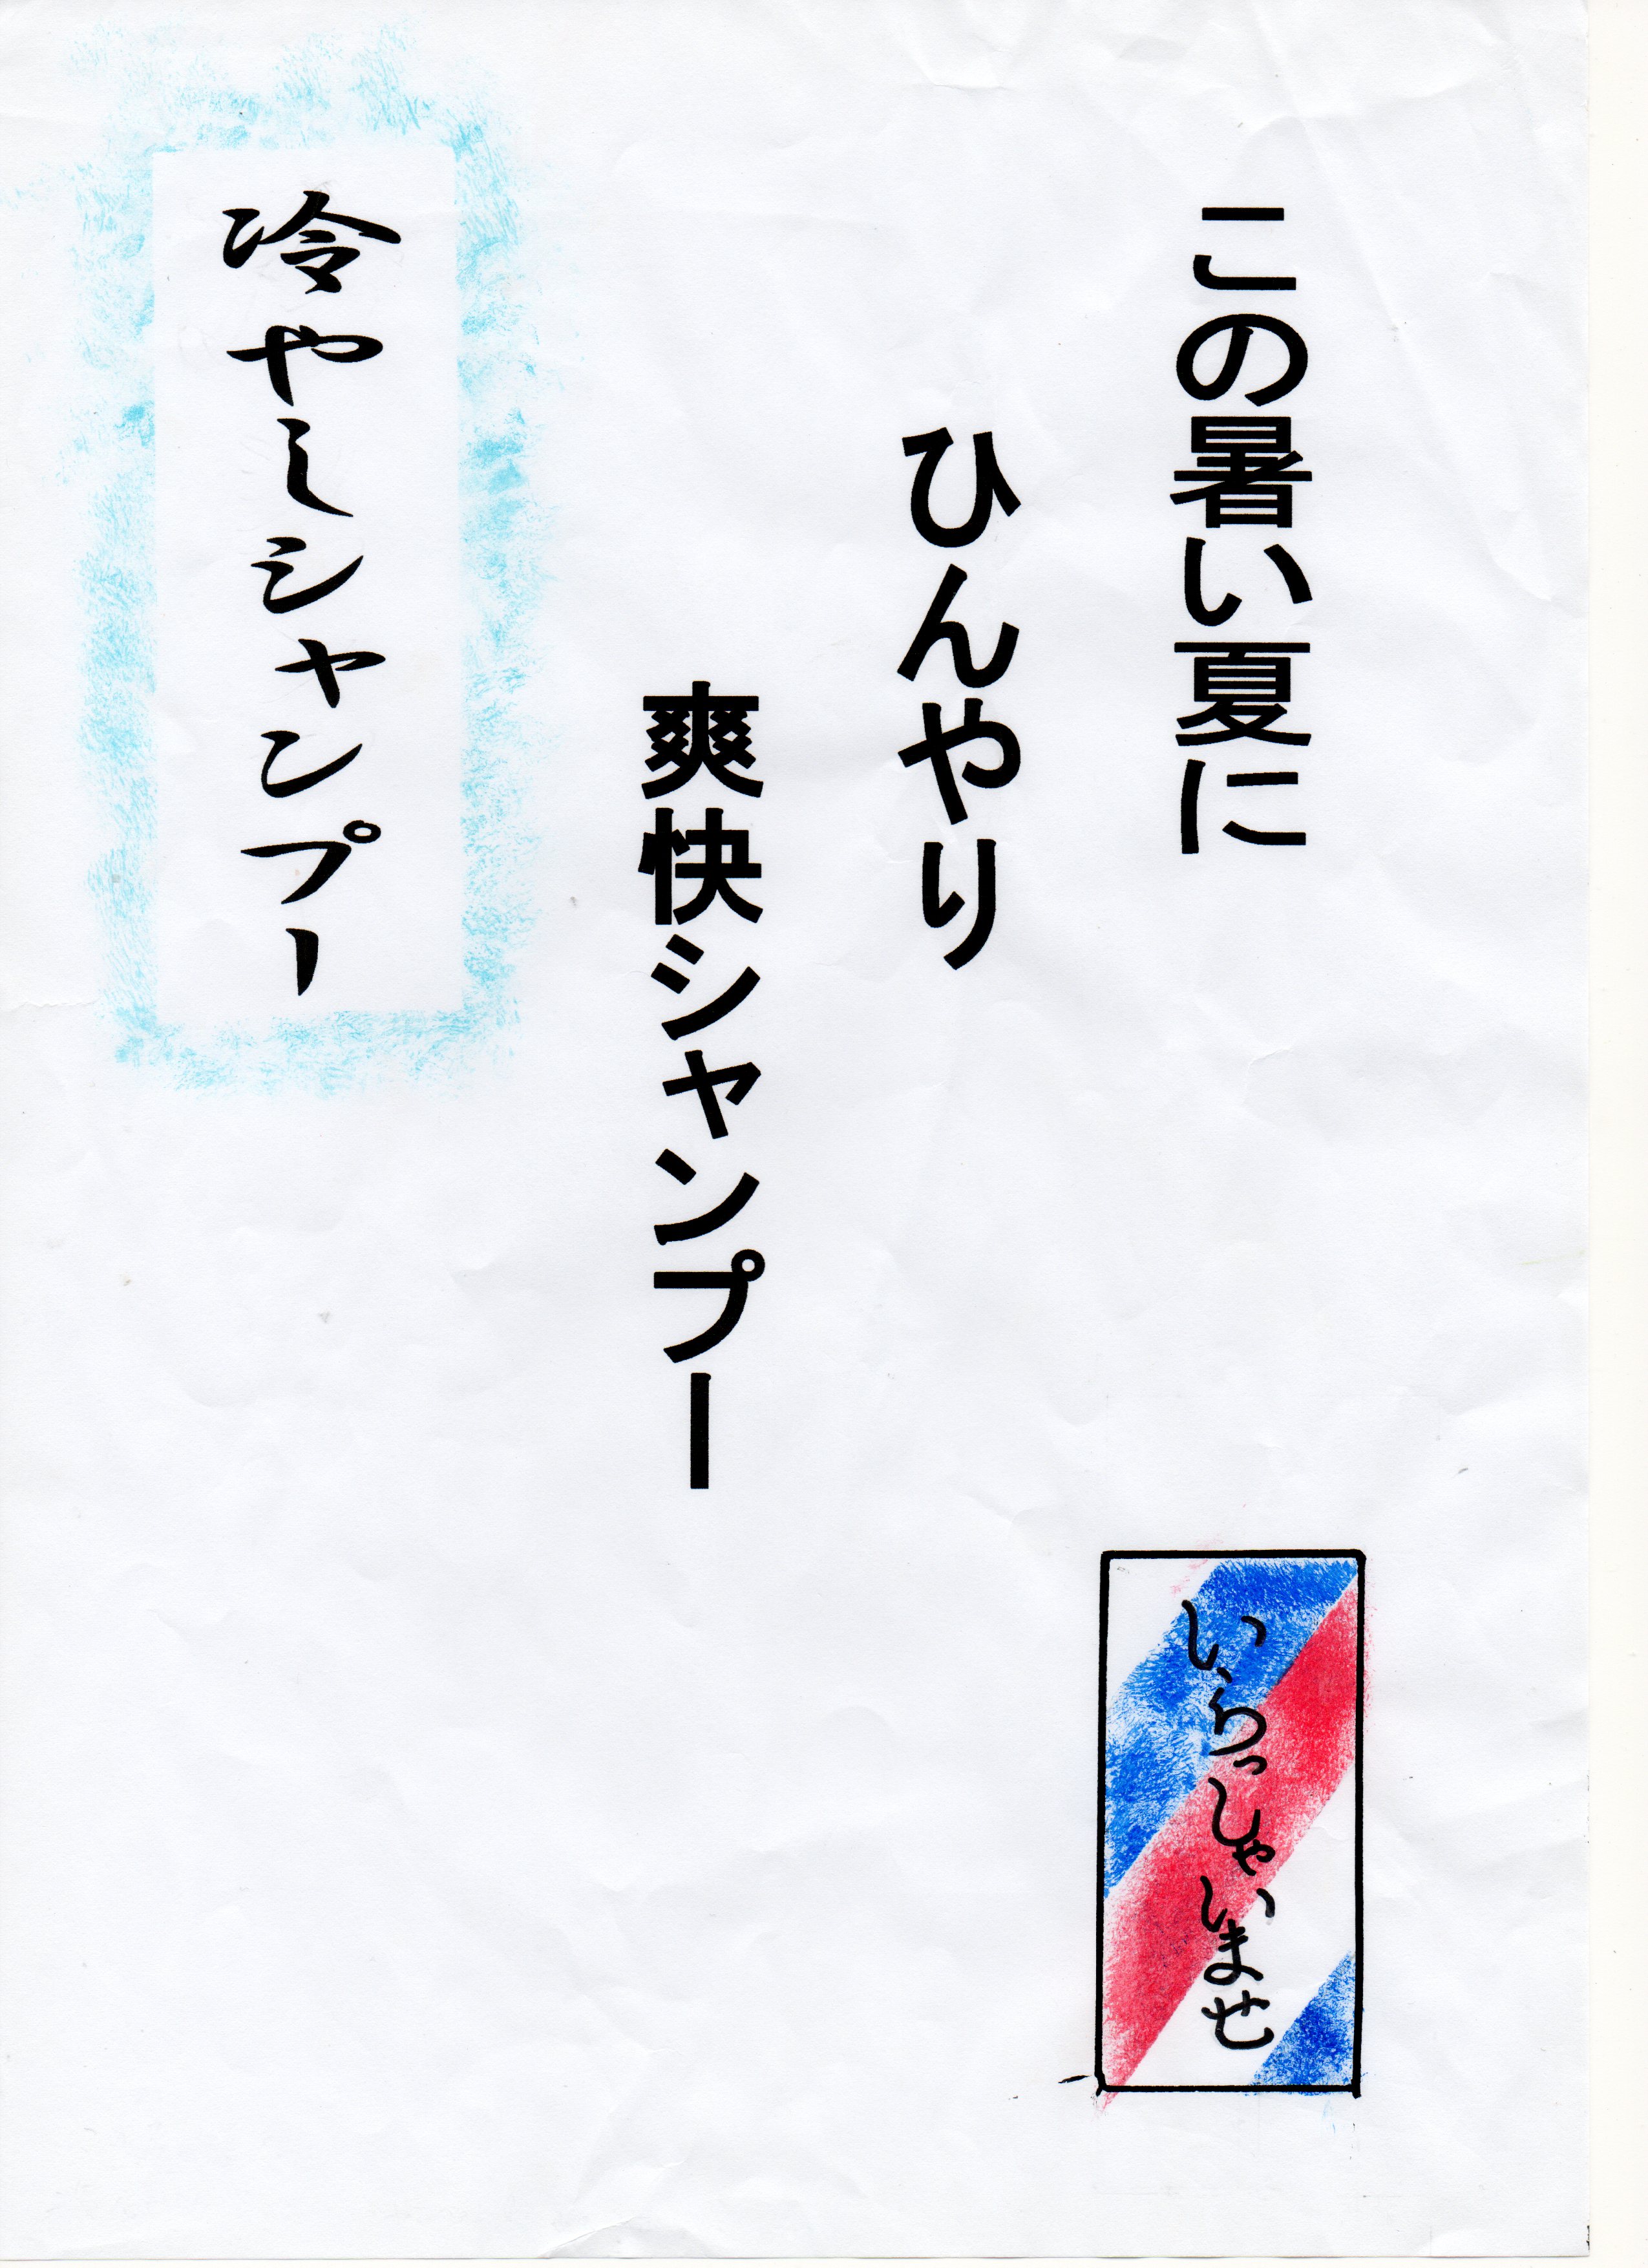 この暑い夏に
ひんやり
爽快シャンプー
冷やしシャンプー
いらっしゃいませ